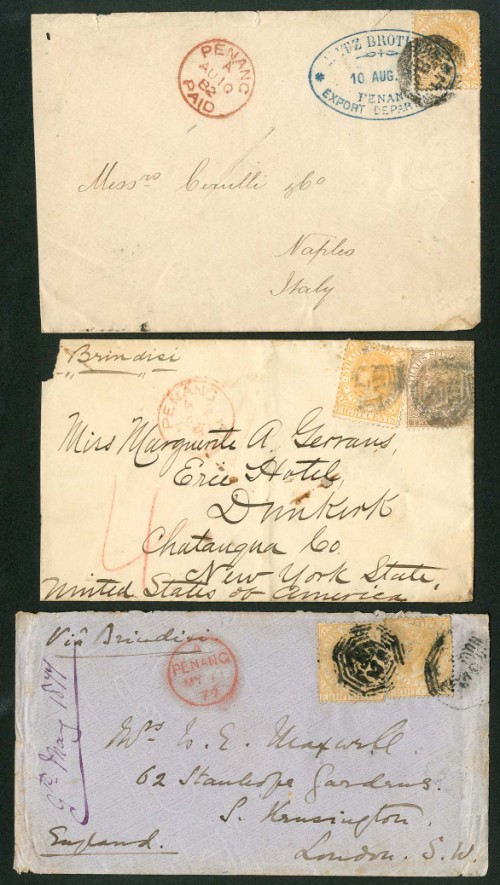 PENANG
A
AU 10
82
PAID
BROTH
10 AUG.
PENANG
EXPORT DEPAR
Messrs Cerulli & Co
Naples
Italy
Brindisi
PENANG
A
Miss Marguerite A Gerrans,
Erie Hotel,
Dunkirk
Chatauqua Co.
New York State,
United States of America
4
EIGHT CENTS
Via Brindisi
PENANG
MY
79
Mrs W. E. Maxwell
62 Stanhope Gardens.
S. Kensington.
London. S.W.
England.